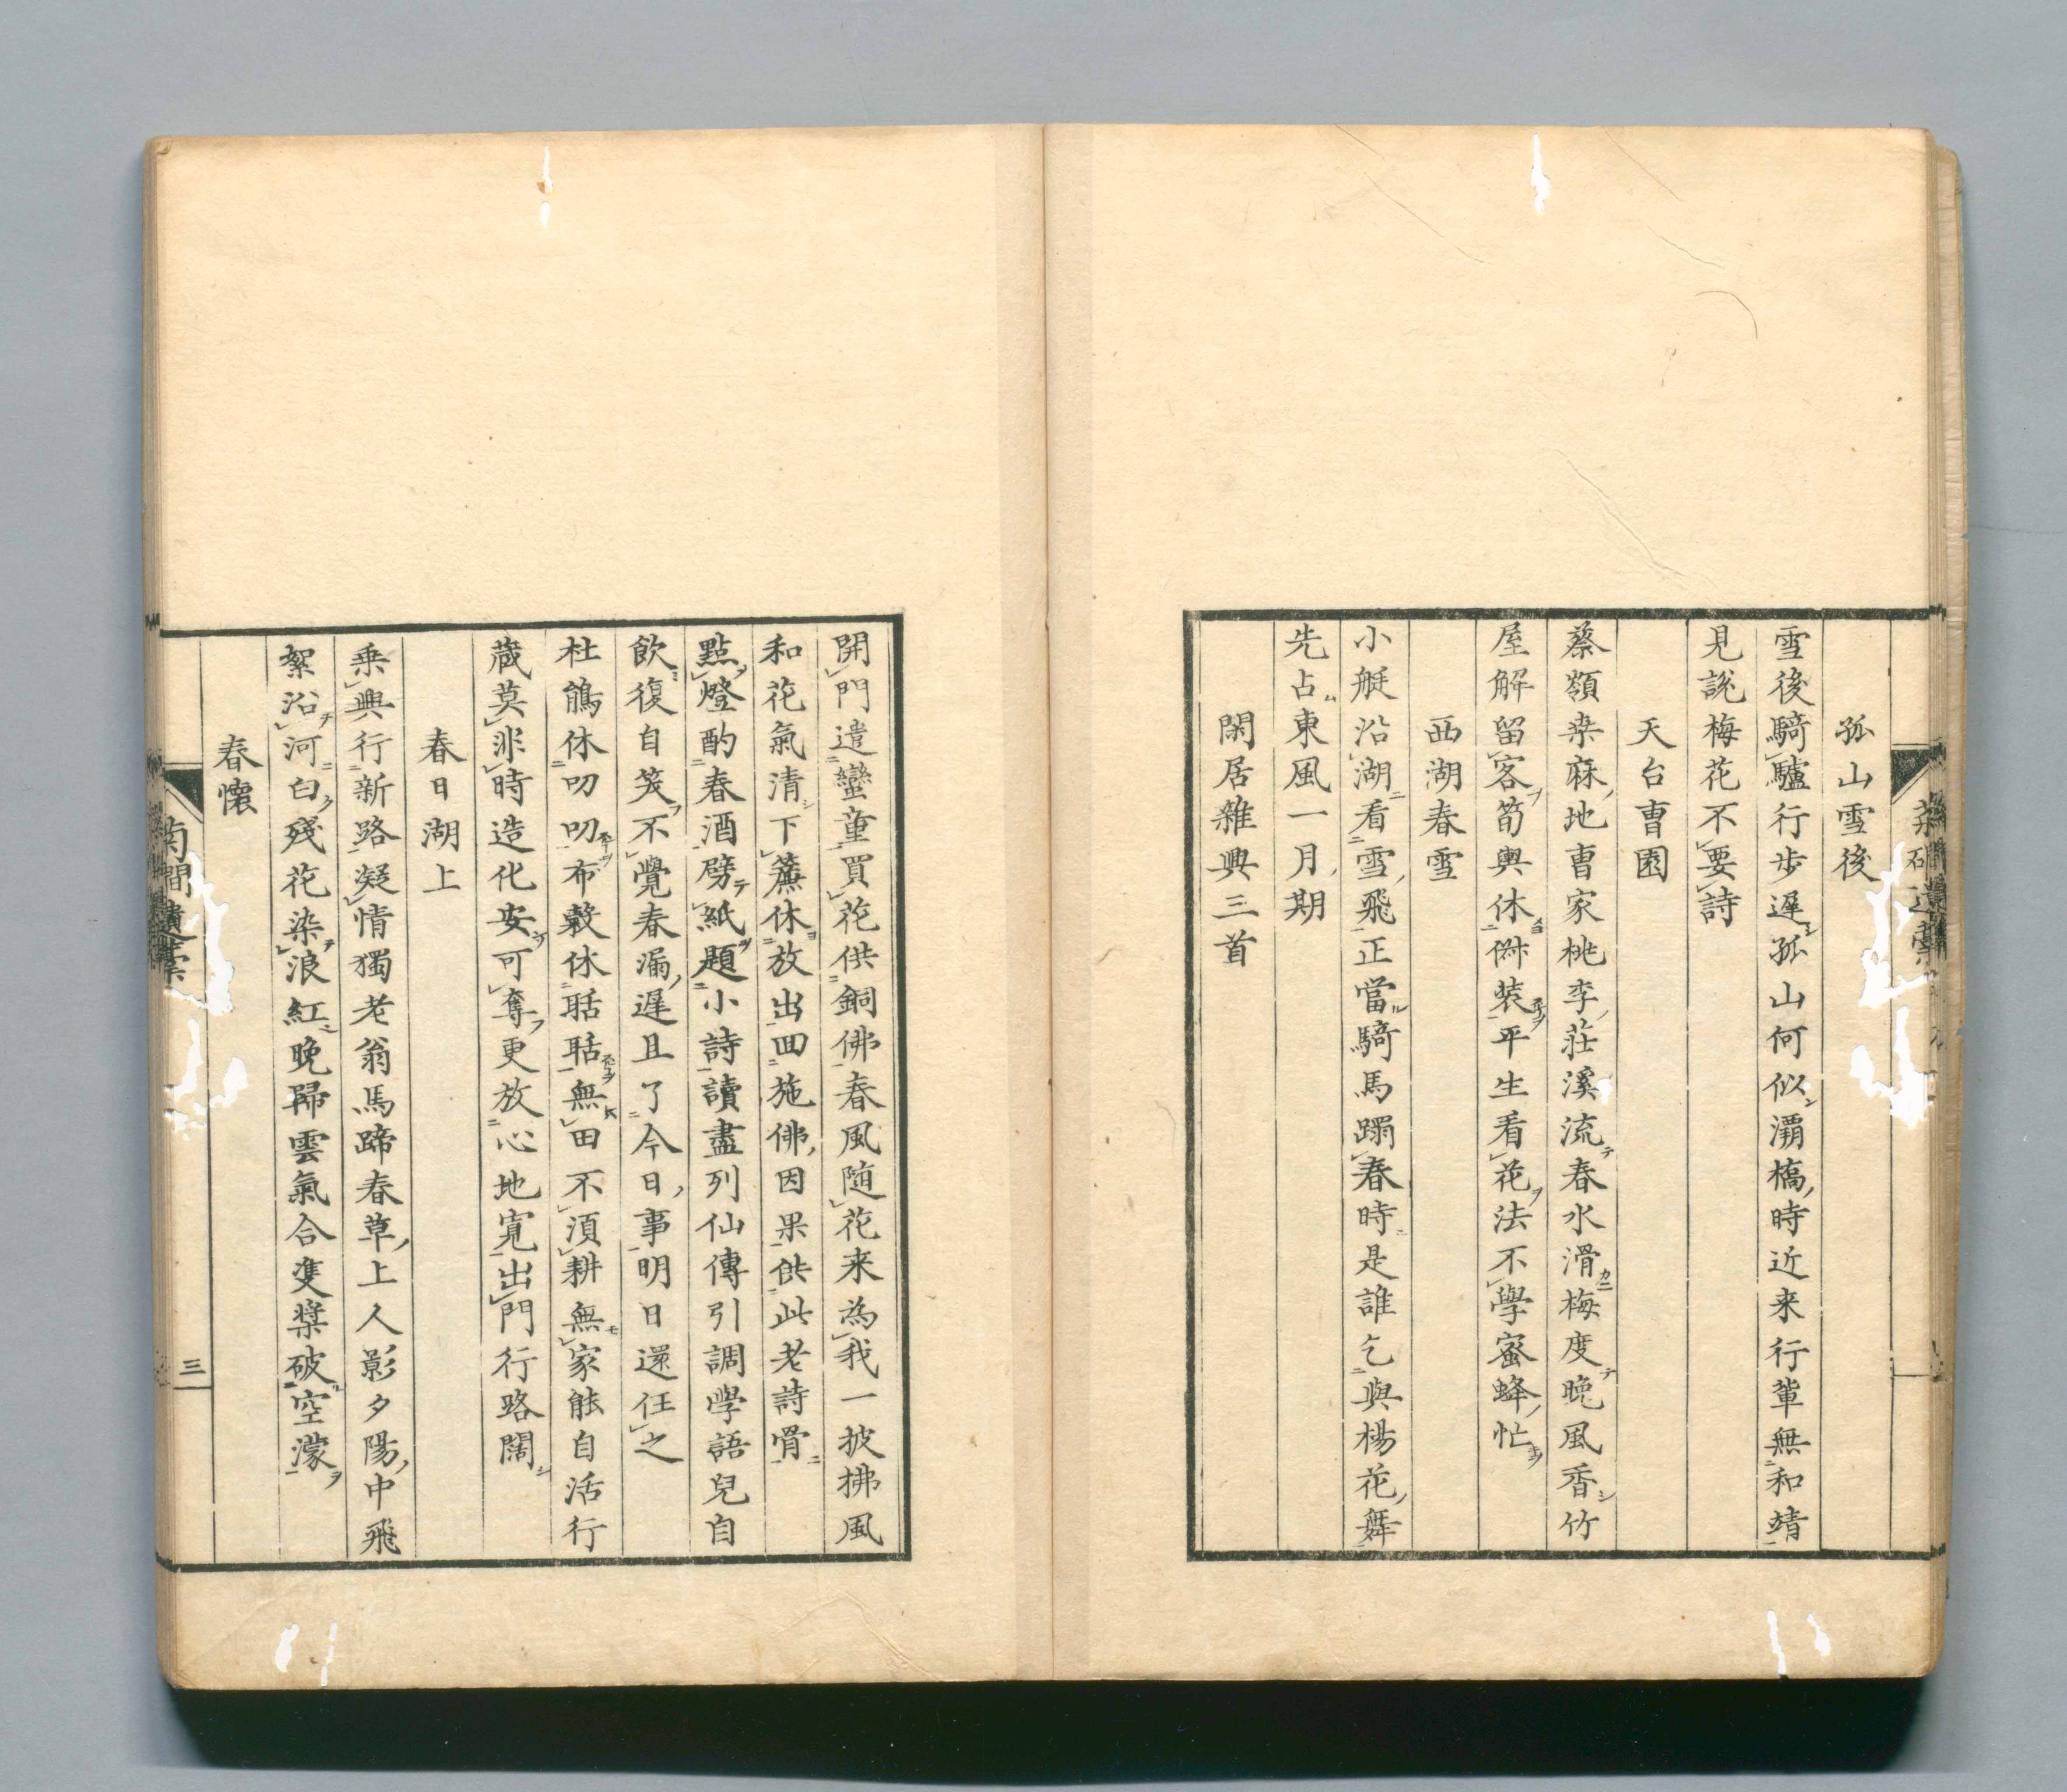 孤山雪後
雪後騎驢行步遲孤山何似灞橋時近来行輩無和靖
見說梅花不要詩
天台曺園
蔡嶺桒麻地曺家桃李莊溪流春水滑梅度晚風香竹
屋解留客筍輿休倂裝平生看花法不學蜜蜂忙
西湖春雪
小艇沿湖看雪飛正當騎馬踢春時是誰乞與楊花舞
先占東風一月期
閑居雜興三首
開門遣蠻童買花供銅佛春風随花来為我一披拂風
和花氣清下簾休放出回施佛因果供此老詩骨
點燈酌春酒劈紙題小詩讀盡列仙傳引調學語兒自
飲復自笑不覺春漏遲且了今日事明日還任之
杜鵑休叨叨布穀休聒聒無田不須耕無家能自活行
蔵莫非時造化安可奪更放心地寬出門行路闊
春日湖上
乗興行新路凝情獨老翁馬蹄春草上人影夕陽中飛
絮沿河白殘花染浪紅晚歸雲氣合隻槳破空濛
春懷
菊磵遺稾
三